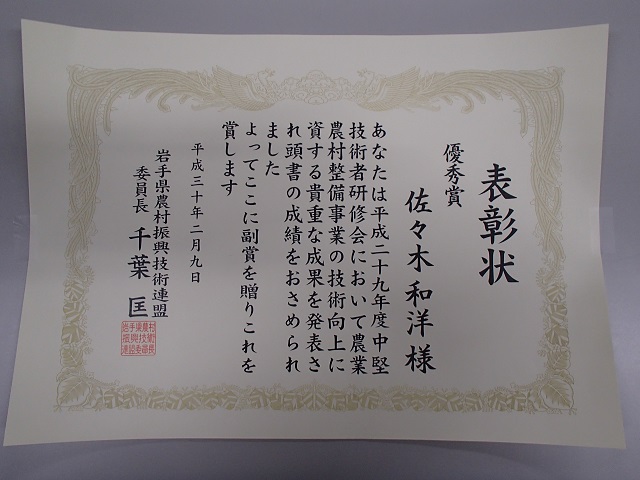 表彰状
優秀賞
佐々木和洋様
あなたは平成二十九年度中堅
技術者研修会において農業
農村整備事業の技術向上に
資する貴重な成果を発表さ
れ頭書の成績をおさめられ
ました
よってここに副賞を贈りこれを
賞します
平成三十年二月九日
岩手県農村振興技術連盟
委員長 千葉匡
岩手県農村
振興技術
連盟委員長